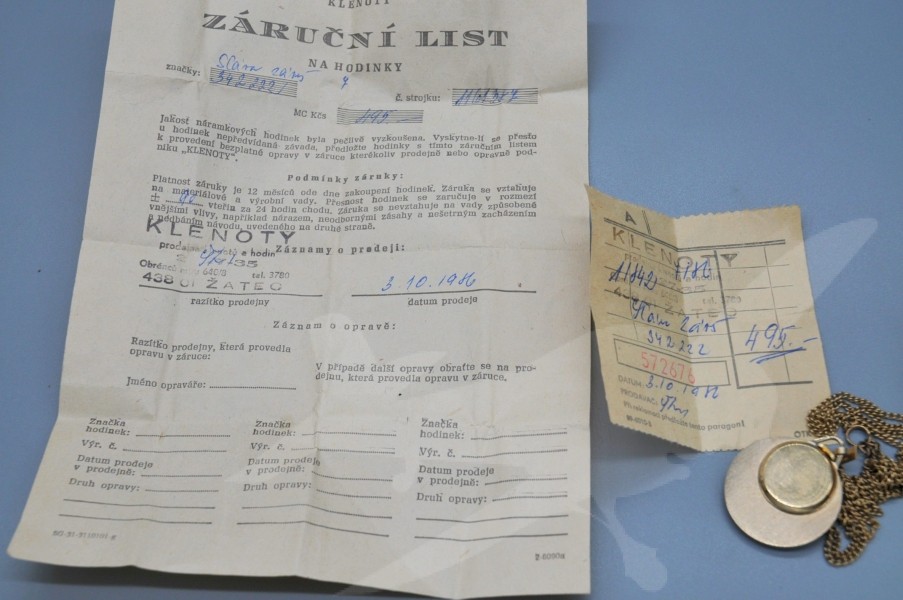 KLENOTY
ZÁRUČNÍ LIST
NA HODINKY
značky: Sláva
342222
č. strojku:
MC Kčs 495.-
Jakost náramkových hodinek byla pečlivě vyzkoušena. Vyskytne-li se přesto
u hodinek nepředvídaná závada, předložte hodinky s tímto záručním listem
k provedení bezplatné opravy v záruce kterékoliv prodejně nebo opravně pod-
niku „KLENOTY".
Podmínky záruky:
Platnost záruky je 12 měsíců ode dne zakoupení hodinek. Záruka se vztahuje
na materiálové a výrobní vady. Přesnost hodinek se zaručuje v rozmezí
± vteřin za 24 hodin chodu. Záruka se nevztahuje na vady způsobené
vnějšími vlivy, například nárazem, neodbornými zásahy a nešetrným zacházením
a nedbáním návodu, uvedeného na druhé straně.
KLENOTY
Záznamy o prodeji:
tel. 3780
438 01 ŽATEC
3.10.1986
razítko prodejny
datum prodeje
Záznam o opravě:
Razítko prodejny, která provedla
opravu v záruce:
V případě další opravy obraťte se na pro-
dejnu, která provedla opravu v záruce.
Jméno opraváře:
Značka
hodinek:
Výr. č.
Datum prodeje
v prodejně:
Druh opravy:
Značka
hodinek:
Výr. č.
Datum prodeje
v prodejně:
Druh opravy:
Značka
hodinek:
Výr. č.
Datum prodeje
v prodejně:
Druh opravy:
A
KLENOTY
tel. 3780
ŽATEC
342222
495.-
572676
DATUM: 3.10.1986
PRODAVAČ:
Při reklamaci předložte tento paragon!